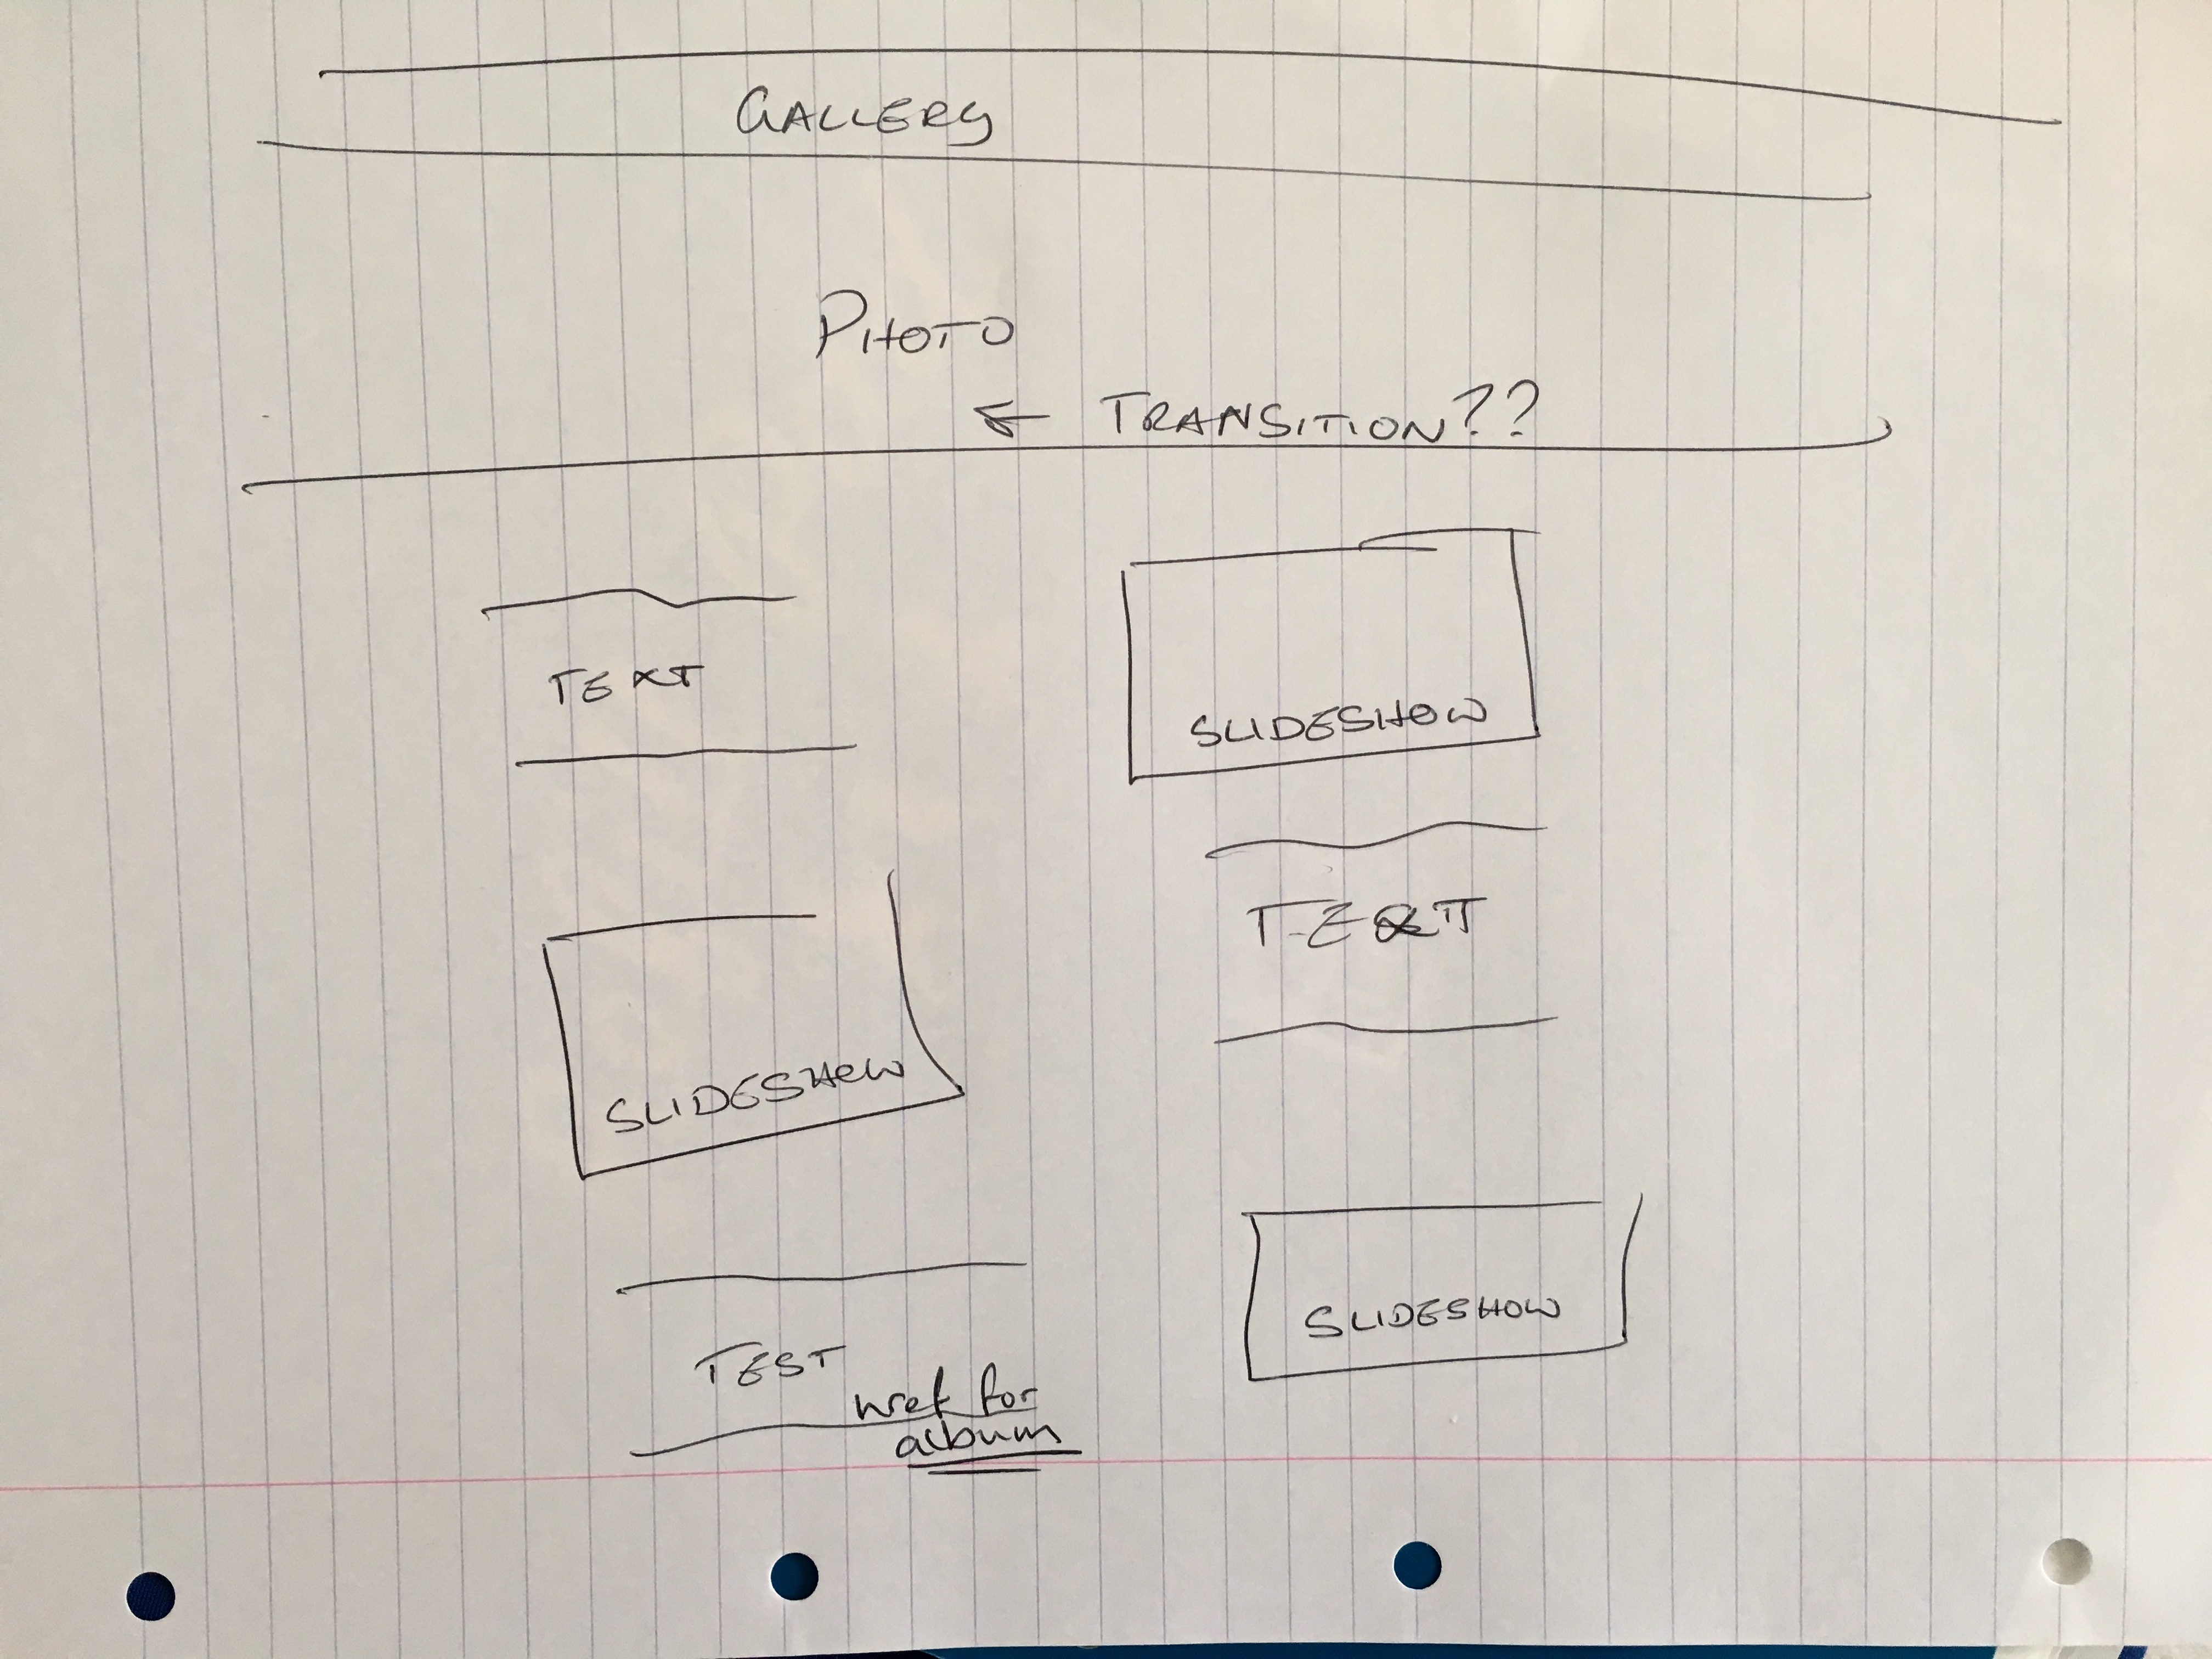 GALLERY
PHOTO
← TRANSITION??
TEXT
SLIDESHOW
SLIDESHOW
TEXT
TEST
for
album
SLIDESHOW